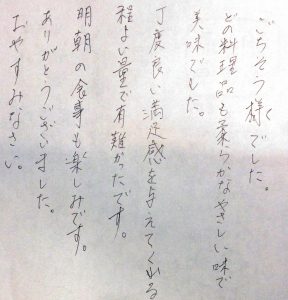 ごちそう様でした。
どの料理品も柔らかなやさしい味で
美味でした。
丁度良い満足感を与えてくれる
程よい量で有難かったです。
明朝の食事も楽しみです。
ありがとうございました。
おやすみなさい。